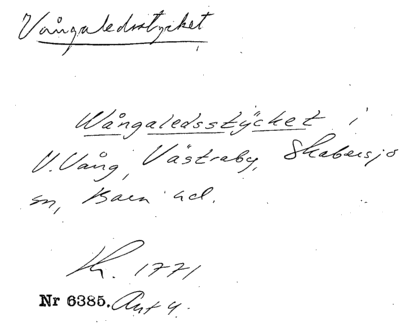 Vångaledsstycket
Wångaledsstÿcket i
V. Vång, Västraby, Skabersjö
sn, Bara hd.
Lh. 1771
Nr 6385. Akt 4.